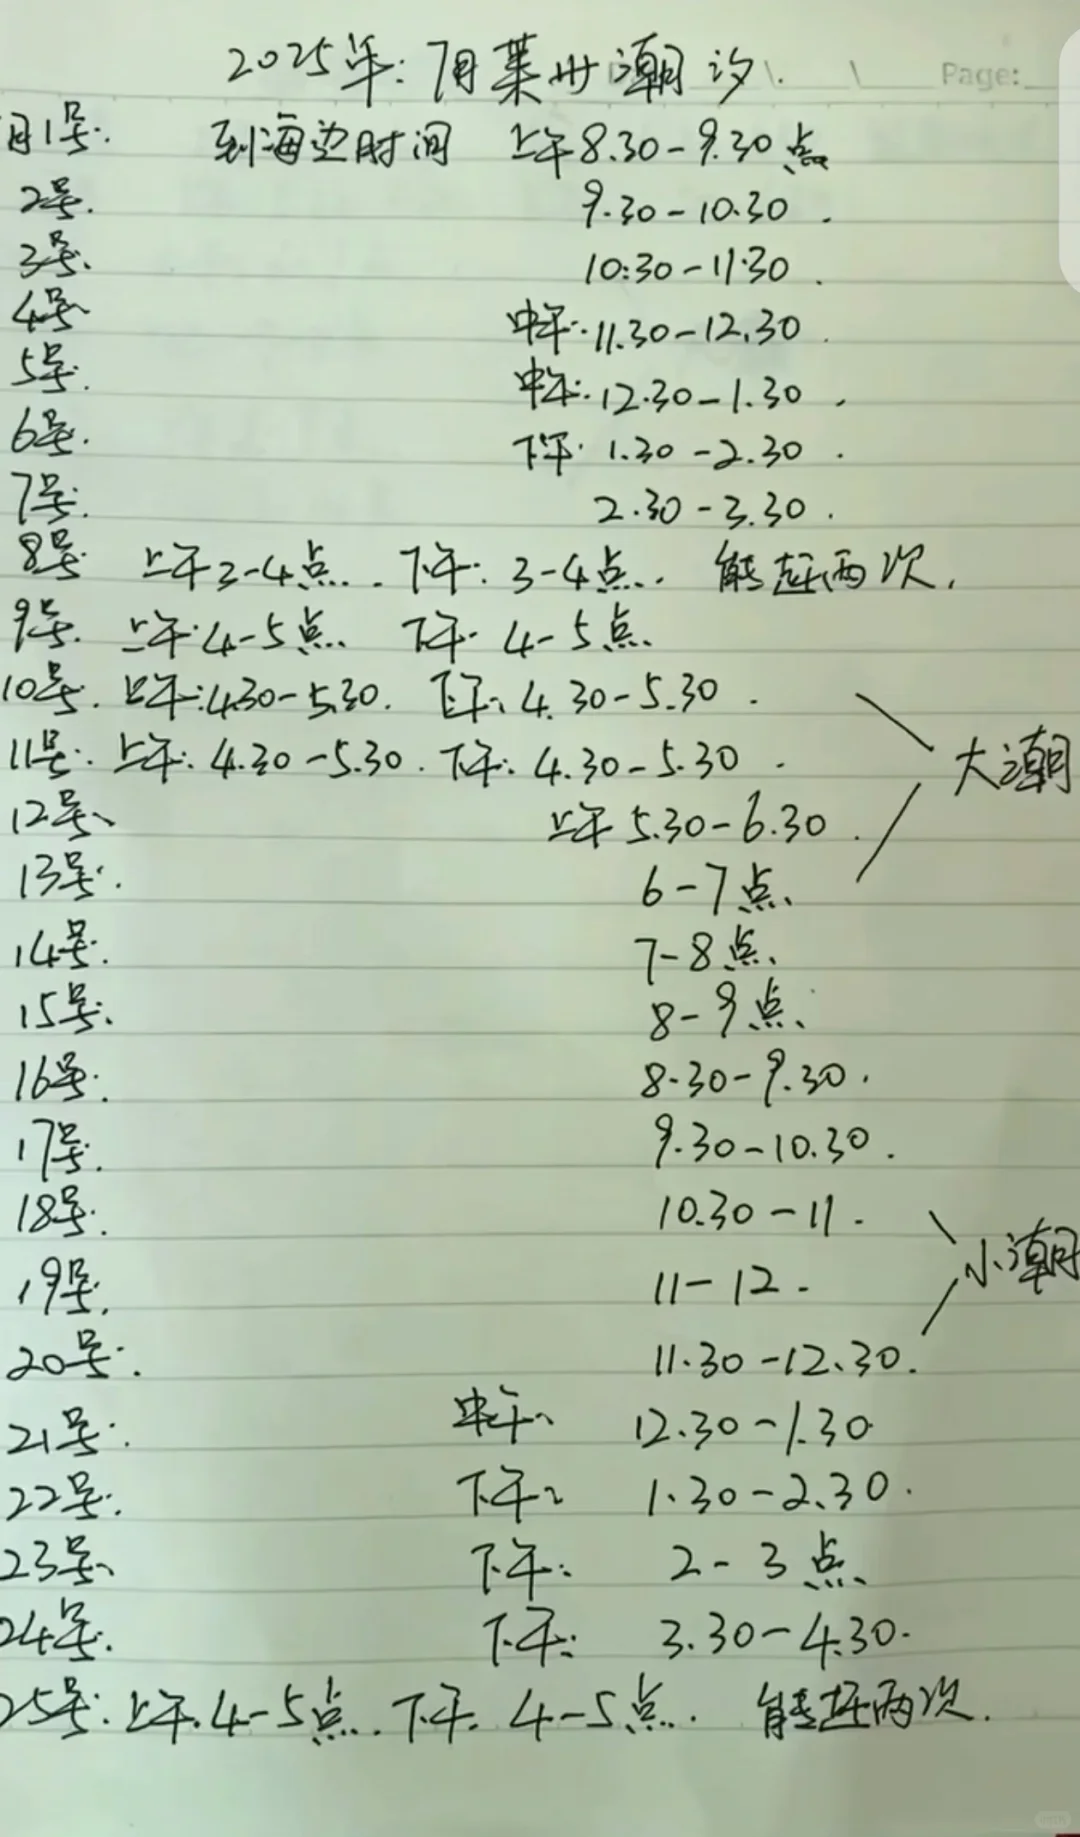 Page:
2025年:7月莱州潮汐.
月1号. 到海边时间 上午8.30-9.30点
2号. 9.30-10.30.
3号. 10:30-11.30.
4号 中午:11.30-12.30.
5号. 中午:12.30-1.30.
6号. 下午 1.30-2.30.
7号. 2.30-3.30.
8号 上午3-4点. 下午:3-4点. 能赶两次.
9号. 上午:4-5点. 下午 4-5点.
10号. 上午:4.30-5.30. 下午:4.30-5.30.
11号. 上午:4.30-5.30. 下午:4.30-5.30.
大潮
12号、 上午5.30-6.30.
13号. 6-7点、
14号. 7-8点、
15号. 8-9点、
16号. 8.30-9.30.
17号. 9.30-10.30.
18号. 10.30-11.
小潮
19号. 11-12.
20号. 11.30-12.30.
21号. 中午、 12.30-1.30
22号. 下午: 1.30-2.30.
23号、 下午: 2-3点、
24号. 下午: 3.30-4.30.
25号:上午.4-5点. 下午. 4-5点. 能赶两次.